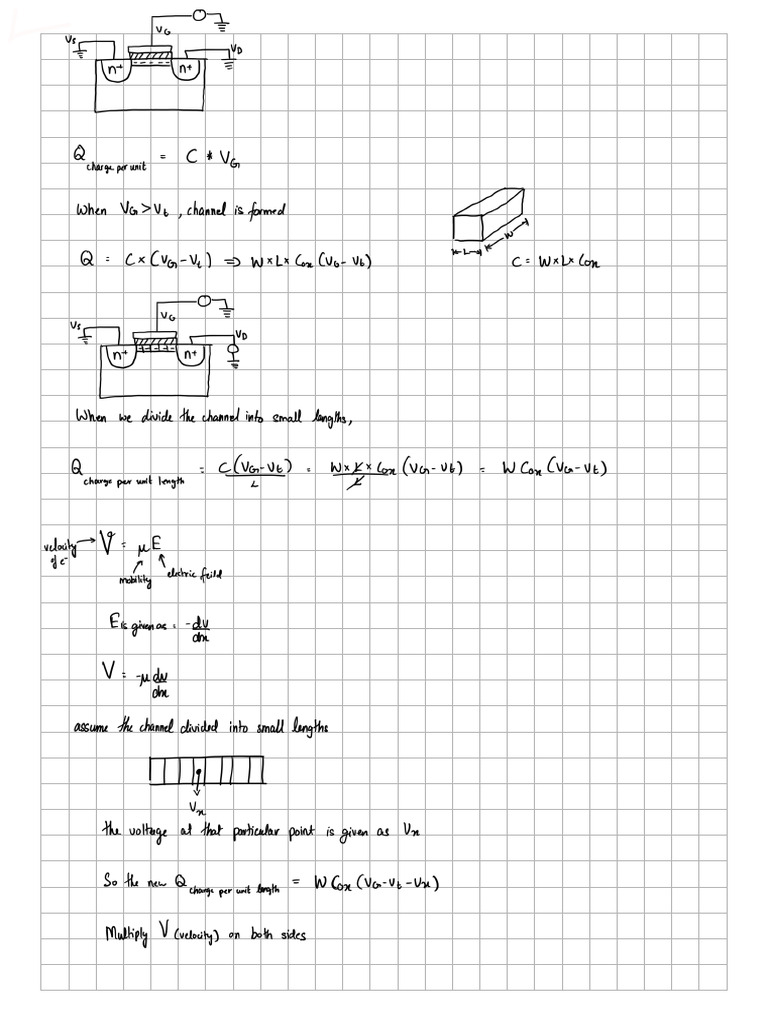 VG
VS
VD
n+ n+
Q charge per unit = C * VG
When VG > Vt , channel is formed
L W
Q = C × (VG - Vt) ⇒ W × L × Cox (VG - Vt)
C = W × L × Cox
VG
VS
VD
n+ n+
When we divide the channel into small lengths,
Q charge per unit length = C(VG - Vt)/L = W × L × Cox/L (VG - Vt) = W Cox (VG - Vt)
velocity of e- → V = μE
mobility electric feild
E is given as = -dv/dx
V = -μ dv/dx
assume the channel divided into small lengths
Vx
the voltage at that particular point is given as Vx
So the new Q charge per unit length = W Cox (VG - Vt - Vx)
Multiply V (velocity) on both sides